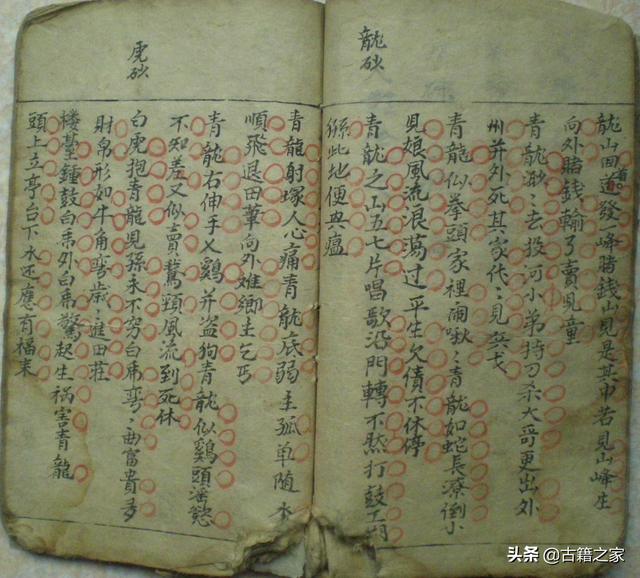 龍砂
龍山田道發一峰賭錢山見是其中若見山峰生
向外賭錢輸了賣兒童
青龍砂之去投河小弟持刀杀大哥更出外
州并外死其家代〻見兵戈
青龍似拳頭家裡鬧啾〻青龍如蛇長潦倒小
兒娘風流浪蕩过平生欠債不休停
青龍之山五七片唱歌沿門轉不然打鼓
緜此地便興瘟
青龍射塚人心痛青龍底弱主孤单随水
順飛退田筆向外难鄉走乞丐
青龍右伸手乂鷄并盗狗青龍似鷄頭淫慾
不知羞又似賣鵞頸風流到死休
虎砂
白虎抱青龍兒孫永不穷白虎弯〻曲富貴多
財帛形如牛角弯歲〻進田荘
楼臺鐘鼓白虎外白虎驚起生祸害青龍
頭上立亭台下水还應有福来
头条 @古籍之家